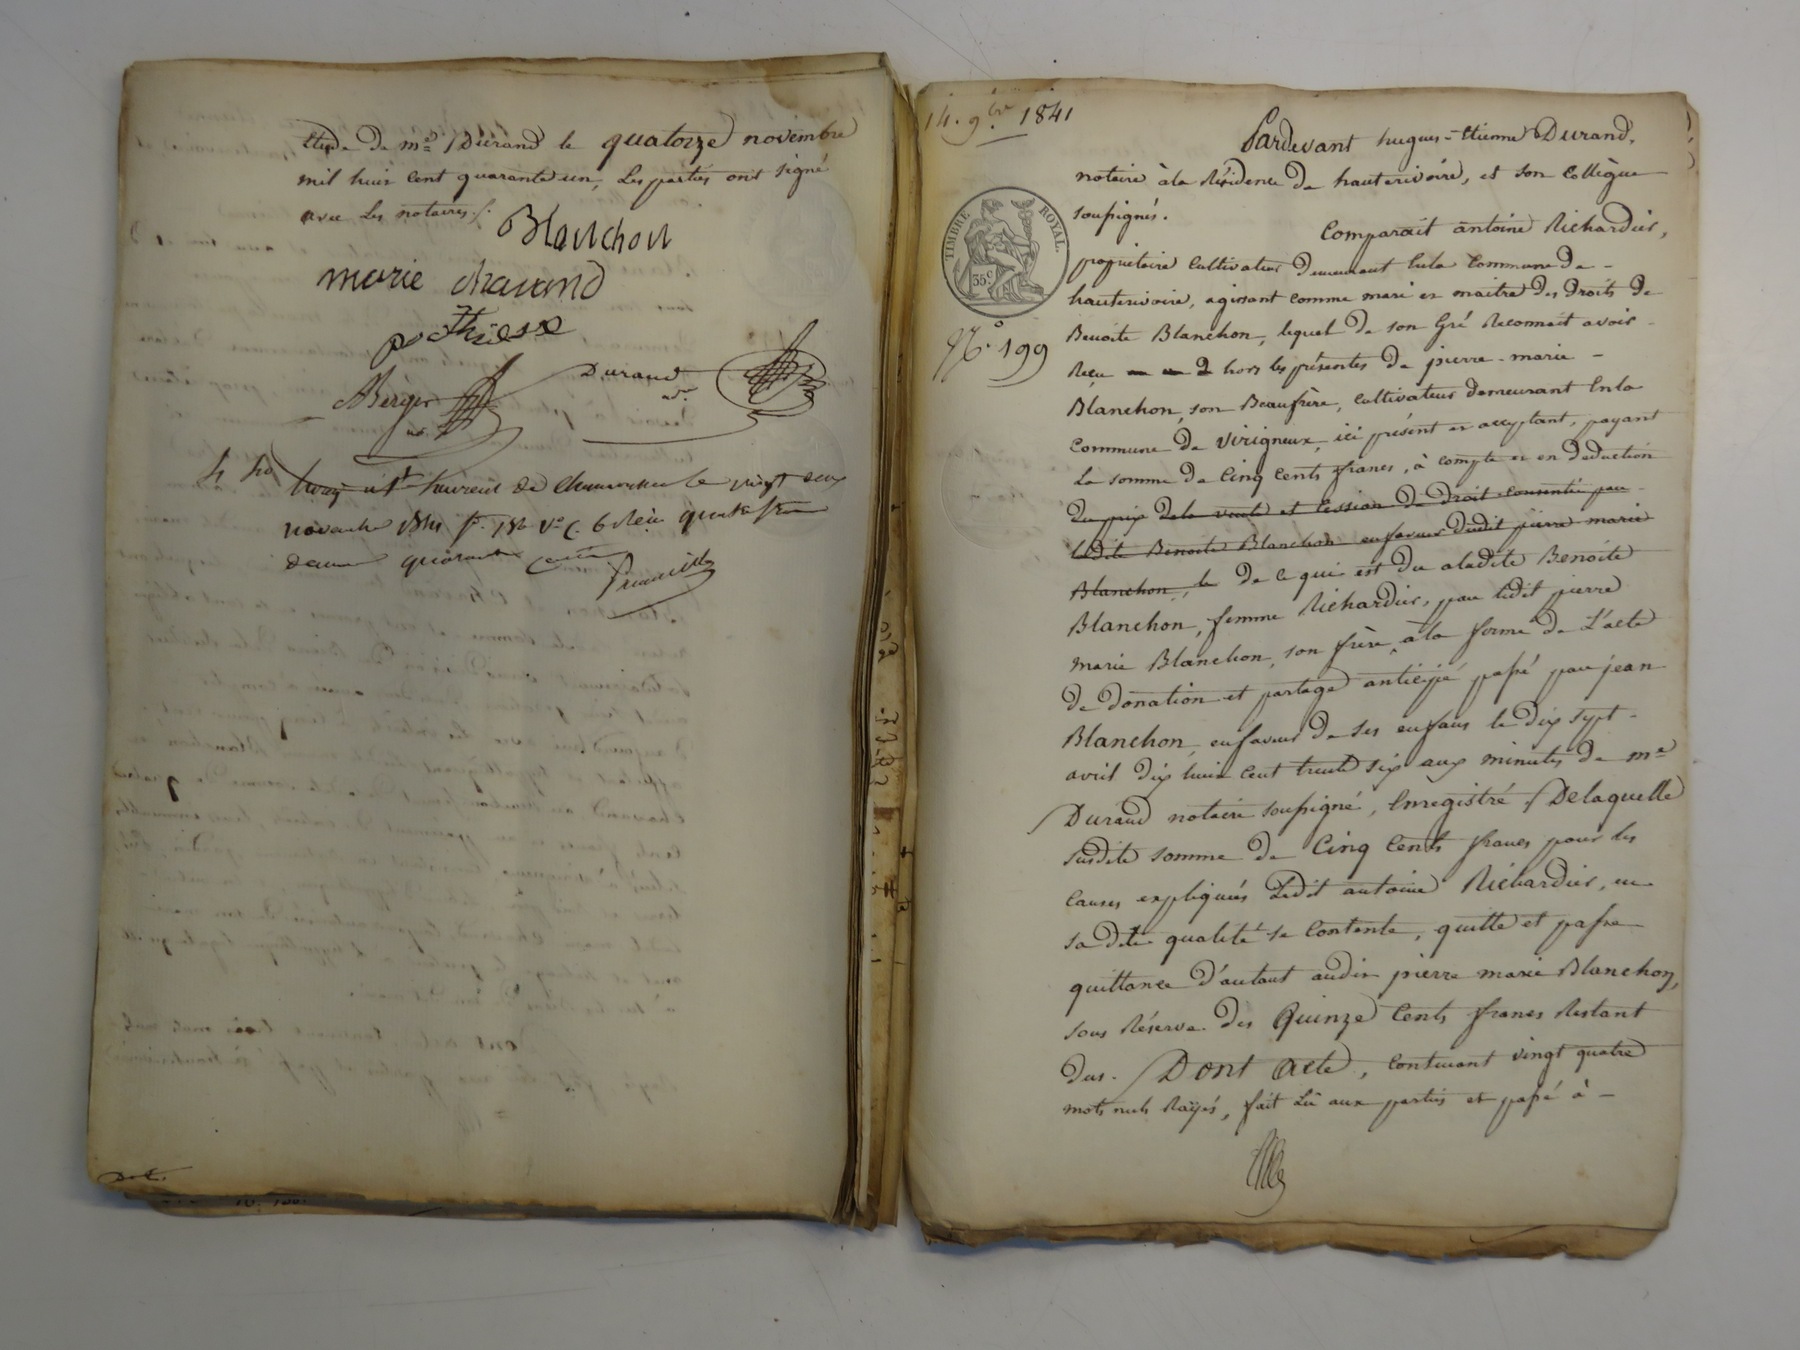 Etude de me Durand le quatorze novembre
mil huit cent quarante un, Les parties ont signé
avec Les notaires./.
Blanchon
marie chavand
Berger
Durand
not.
4 40
novembre 1841 fo. 182 Vo C. 6 Reçu quatre francs
quarante
14. 9bre 1841
Pardevant hugues-Etienne Durand,
notaire à la Résidence de hauterivoire, et son Collègue
soussignés.
TIMBRE ROYAL.
35 c
No. 199
Comparait antoine Richardier,
propriétaire Cultivateur demeurant Enla Commune de -
hauterivoire, agissant comme mari et maitre des droits de
Benoite Blanchon, lequel de son Gré Reconnait avoir -
Reçu hors les présentes de pierre-marie -
Blanchon, son Beaufrère, Cultivateur demeurant Enla
Commune de virigneux, ici présent et acceptant, payant
La somme de Cinq Cents francs, à compte et en deduction
du prix dela vente et Cession de droit consentie par
ladite Benoite Blanchon enfaveur dudit pierre marie
Blanchon, le de ce qui est du aladite Benoite
Blanchon, femme Richardier, par ledit pierre
marie Blanchon, son frère, àla forme de L'acte
de donation et partage anticipé passé par jean
Blanchon, enfaveur de ses enfans le dix sept -
avril dix huit cent trente six aux minutes de me
Durand notaire soussigné, Enregistré / Delaquelle
susdite somme de Cinq Cents francs pour les
Causes expliquées Ledit antoine Richardier, en
sa dite qualité se Contente, quitte et passe
quittance d'autant audit pierre marie Blanchon,
sous Réserve des Quinze Cents francs Restant
dus. / Dont acte, Contenant vingt quatre
mots nuls Rayés, fait Lû aux parties et passé à -